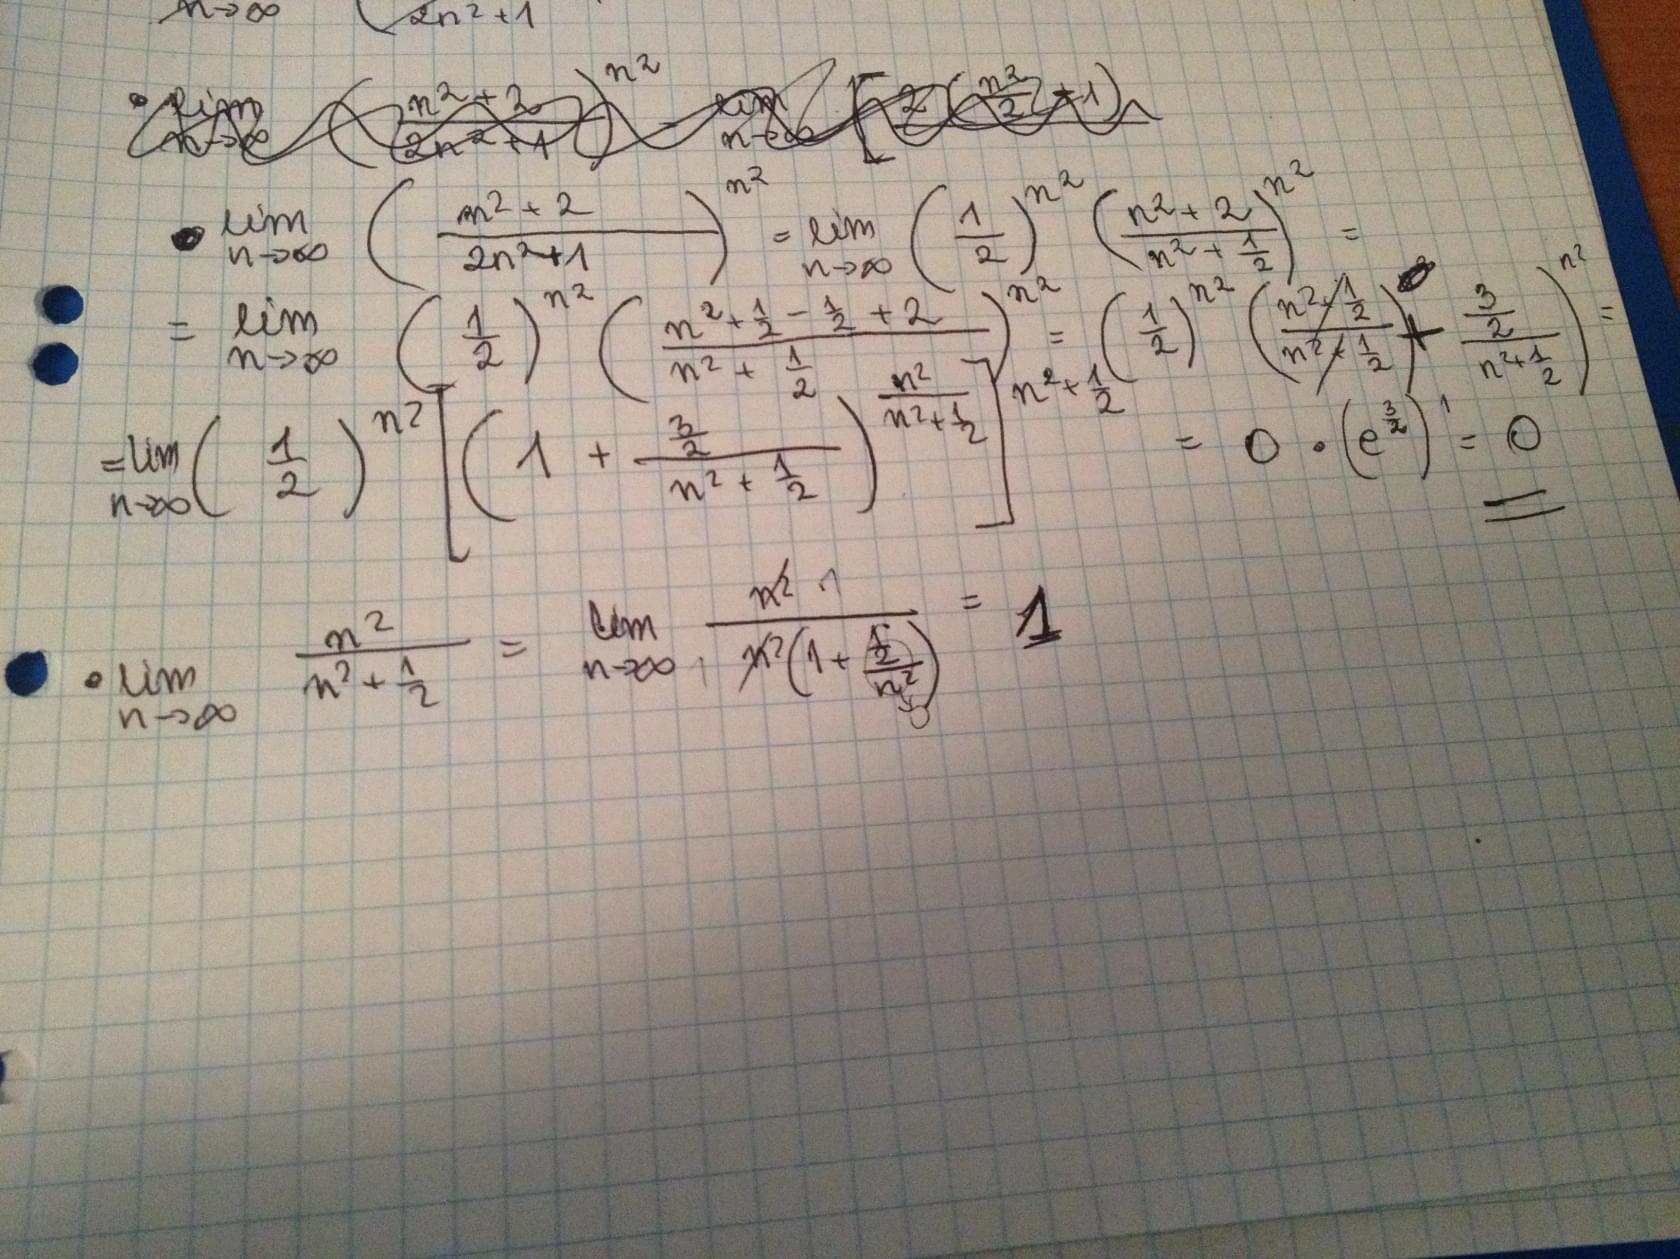 n→∞ ( 2n²+1
• lim n→∞ ( (n²+2)/(2n²+1) )^n² = lim n→∞ [ 2(n²/2 + 1)
• lim n→∞ ( (n²+2)/(2n²+1) )^n² = lim n→∞ (1/2)^n² ( (n²+2)/(n²+1/2) )^n² =
= lim n→∞ (1/2)^n² ( (n²+1/2-1/2+2)/(n²+1/2) )^n² = (1/2)^n² ( (n²+1/2)/(n²+1/2) + (3/2)/(n²+1/2) )^n² =
= lim n→∞ (1/2)^n² [ ( 1 + (3/2)/(n²+1/2) )^(n²/(n²+1/2)) ]^(n²+1/2) = 0 · (e^(3/2))^1 = 0
• lim n→∞ n²/(n²+1/2) = lim n→∞ n² 1/(n²(1+(1/2)/n²)) = 1